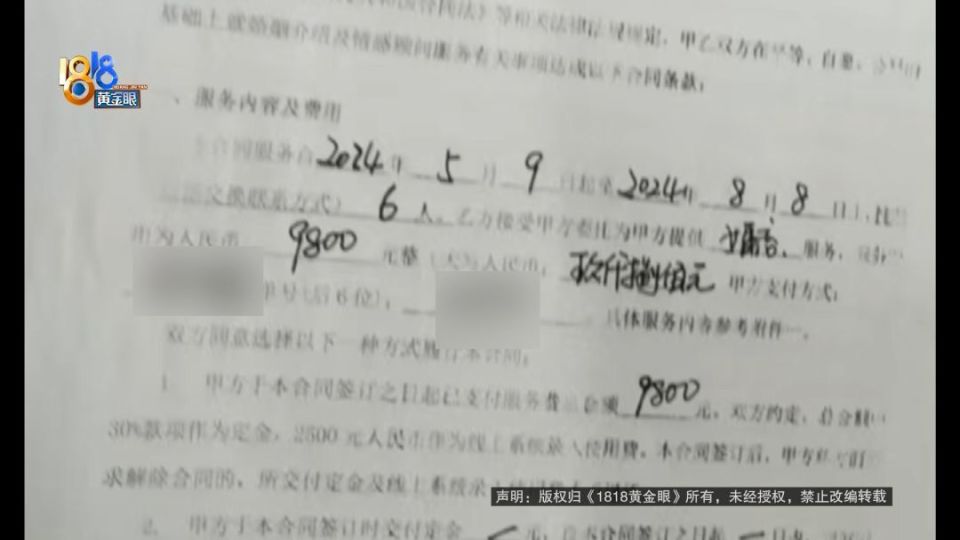 》等相关法律法规规定，甲乙双方在平等、自愿、
基础上就婚姻介绍及情感顾问服务有关事项达成以下合同条款：
1818
黄金眼
、服务内容及费用
合同服务自2024年5月9日起至2024年8月8日止，
交换联系方式）6人。乙方接受甲方委托为甲方提供 服务，
用为人民币 9800 元整（大写人民币： 玖仟捌佰元 甲方支付方式：
单号(后6位)， 具体服务内容参考附件一。
双方同意选择以下一种方式履行本合同：
1. 甲方于本合同签订之日起已支付服务费总金额 9800 元，双方约定，总金额
30%款项作为定金，2500元人民币作为线上系统录入使用费。本合同签订后，甲方
求解除合同的，所交付定金及线上系统录
声明：版权归《1818黄金眼》所有，未经授权，禁止改编转载
2. 甲方于本合同签订时交付定金 元，自本合同签订之日起 日内，